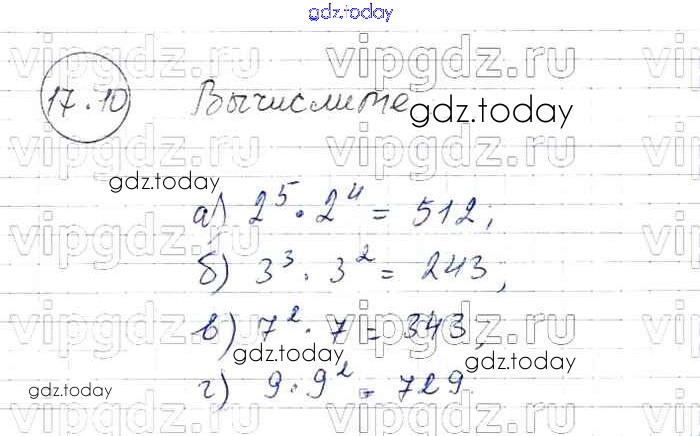 gdz.today
vipgdz.ru vipgdz.ru
17.10 Вычислите
gdz.today
vipgdz.ru vipgdz.ru
gdz.today
а) 2⁵ · 2⁴ = 512;
vipgdz.ru vipgdz.ru
б) 3³ · 3² = 243;
в) 7² · 7 = 343;
vipgdz.ru vipgdz.ru
gdz.today gdz.today
г) 9 · 9² = 729
gdz.today
vipgdz.ru vipgdz.ru